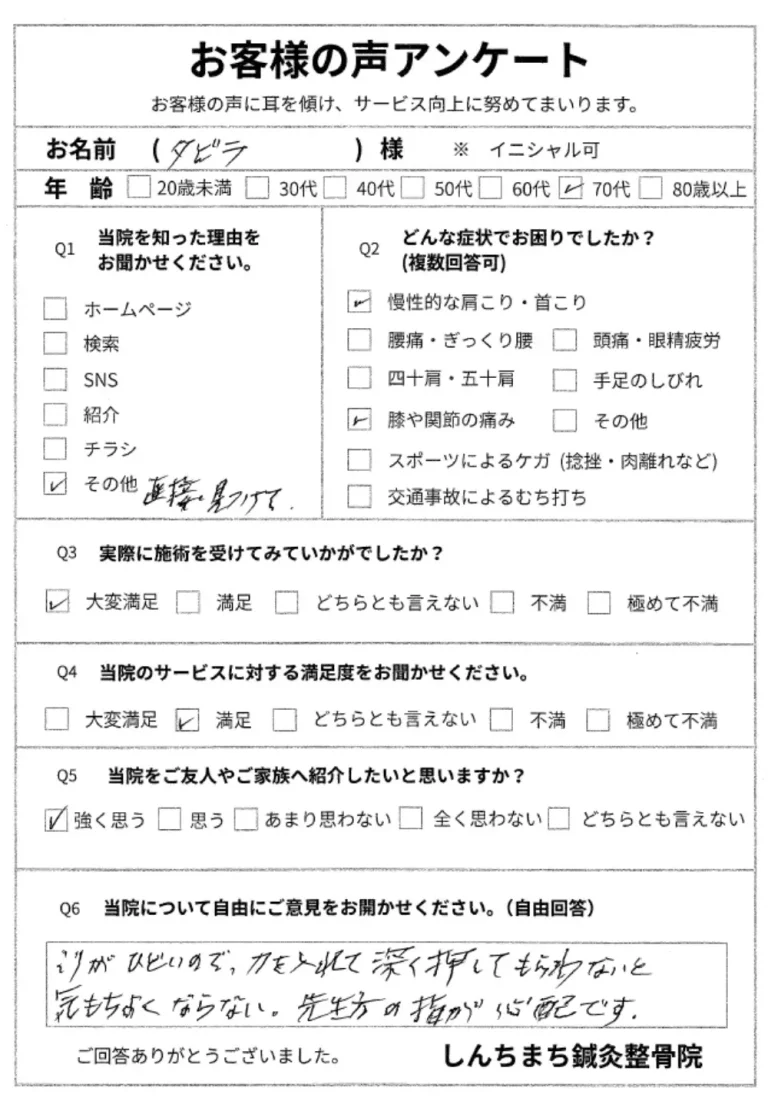 お客様の声アンケート
お客様の声に耳を傾け、サービス向上に努めてまいります。
お名前 ( タビラ ) 様 ※ イニシャル可
年 齢 □ 20歳未満 □ 30代 □ 40代 □ 50代 □ 60代 ☑ 70代 □ 80歳以上
Q1 当院を知った理由を
お聞かせください。
□ ホームページ
□ 検索
□ SNS
□ 紹介
□ チラシ
☑ その他 直接見つけて.
Q2 どんな症状でお困りでしたか？
(複数回答可)
☑ 慢性的な肩こり・首こり
□ 腰痛・ぎっくり腰 □ 頭痛・眼精疲労
□ 四十肩・五十肩 □ 手足のしびれ
☑ 膝や関節の痛み □ その他
□ スポーツによるケガ (捻挫・肉離れなど)
□ 交通事故によるむち打ち
Q3 実際に施術を受けてみていかがでしたか？
☑ 大変満足 □ 満足 □ どちらとも言えない □ 不満 □ 極めて不満
Q4 当院のサービスに対する満足度をお聞かせください。
□ 大変満足 ☑ 満足 □ どちらとも言えない □ 不満 □ 極めて不満
Q5 当院をご友人やご家族へ紹介したいと思いますか？
☑ 強く思う □ 思う □ あまり思わない □ 全く思わない □ どちらとも言えない
Q6 当院について自由にご意見をお開かせください。（自由回答）
こりがひどいので、力を入れて深く押してもらわないと
気もちよくならない。先生方の指が心配です.
ご回答ありがとうございました。 しんちまち鍼灸整骨院